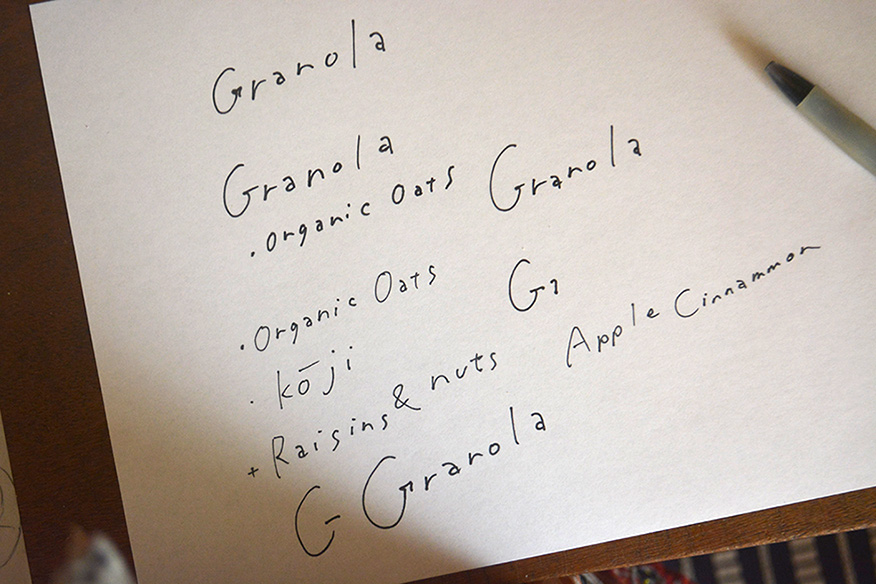 Granola
Granola
.Organic Oats
Granola
.Organic Oats
G
.kōji
Apple Cinnammon
+Raisins & nuts
G Granola